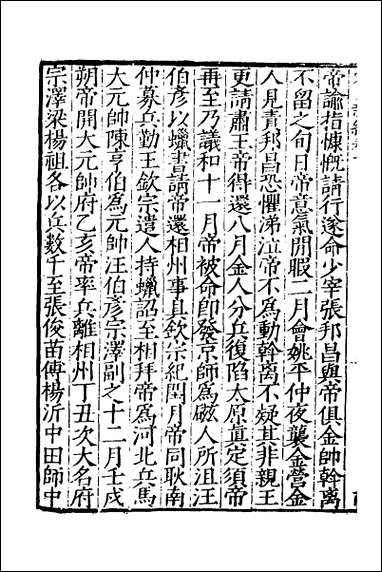 帝諭指慷慨請行遂命少宰張邦昌與帝俱金帥斡离
不留之旬日帝意氣閒暇二月會姚平仲夜襲金營金
人見責邦昌恐懼涕泣帝不為動斡离不疑其非親王
更請肅王帝得還八月金人分兵復陷太原眞定須帝
再至乃議和十一月帝被命即發京師為磁人所沮汪
伯彥以蠟書請帝還相州事具欽宗紀閏月帝同耿南
仲募兵勤王欽宗遣人持蠟詔至相拜帝為河北兵馬
大元帥陳亨伯為元帥汪伯彥宗澤副之十二月壬戌
朔帝開大元帥府乙亥帝率兵離相州丁丑次大名府
宗澤梁楊祖各以兵數千至張俊苗傅楊沂中田師中